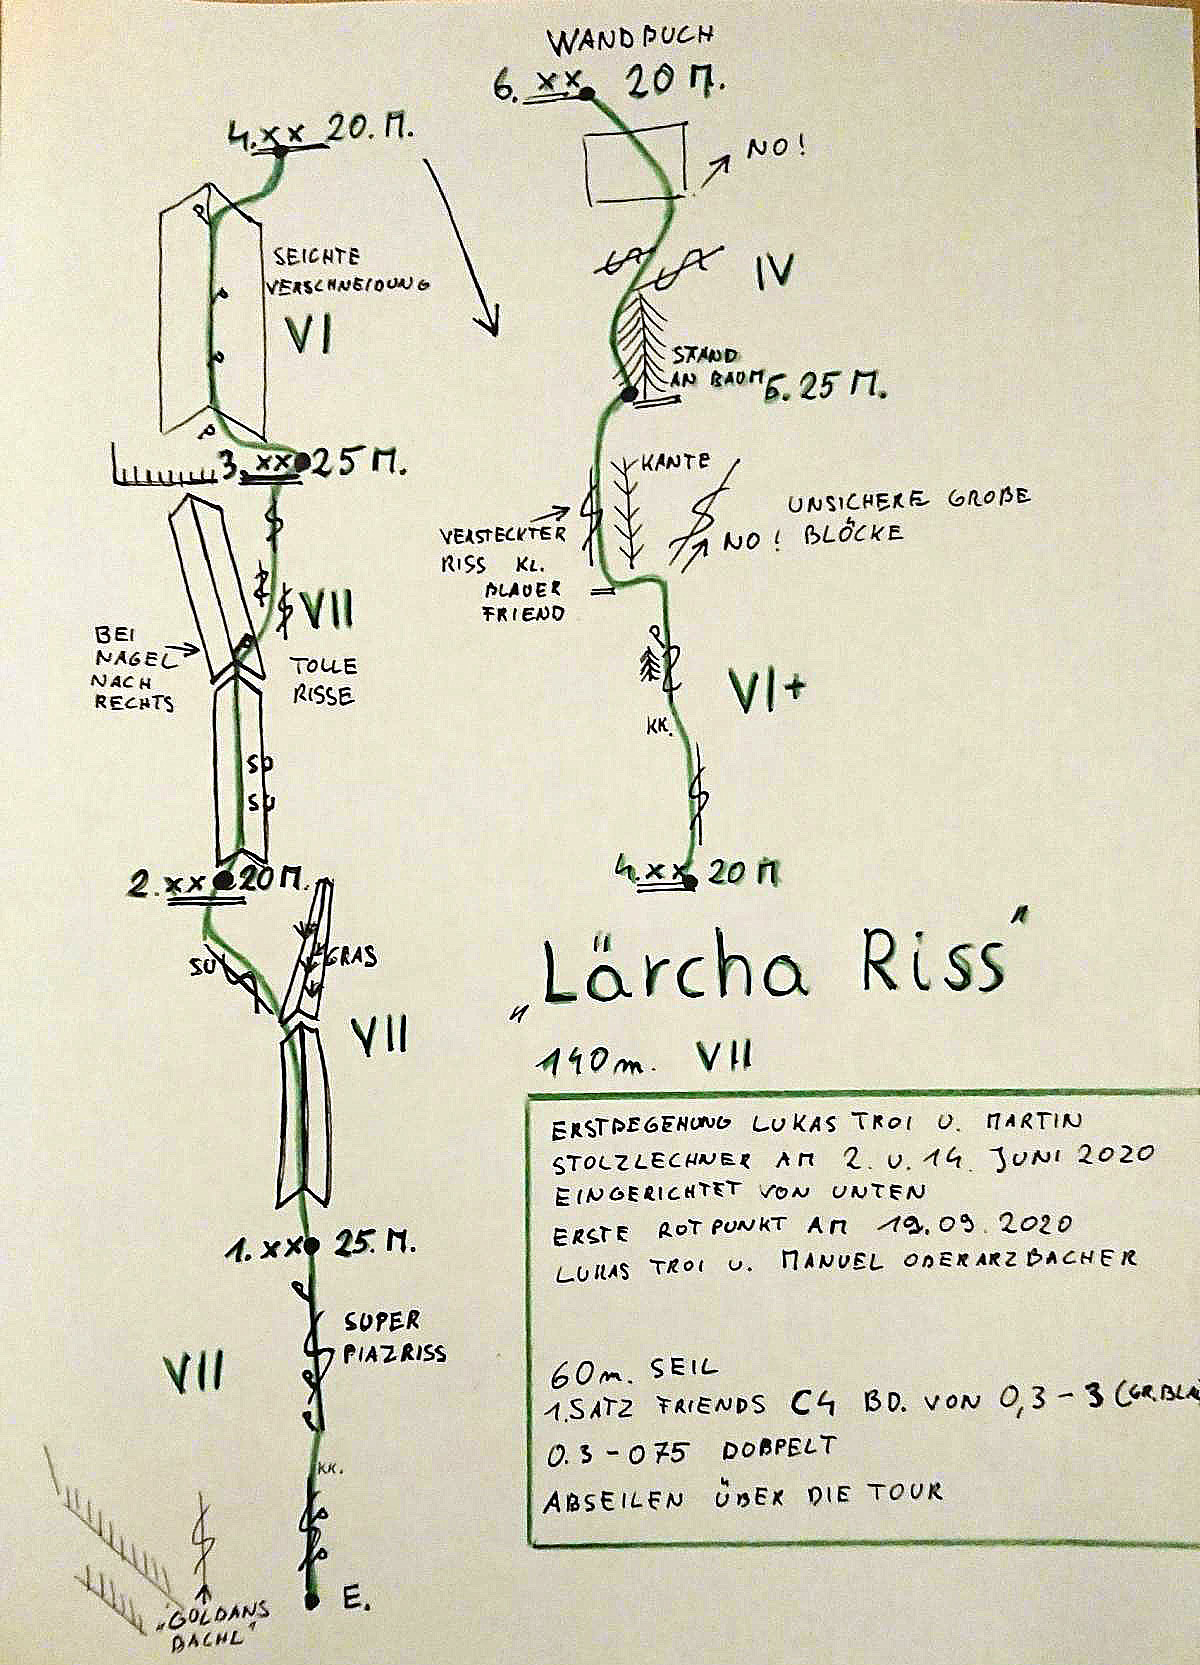 WANDBUCH
6. xx 20 M.
NO!
IV
STAND
AN BAUM 5. 25 M.
KANTE
VERSTECKTER
RISS KL.
BLAUER
FRIEND
UNSICHERE GROßE
NO! BLÖCKE
VI+
KK.
4. xx 20 M
4. xx 20. M.
SEICHTE
VERSCHNEIDUNG
VI
3. xx 25 M.
VII
BEI
NAGEL
NACH
RECHTS
TOLLE
RISSE
SU
SU
2. xx 20 M.
SU
GRAS
VII
1. xx 25. M.
SUPER
PIAZRISS
VII
KK.
E.
„GOLDANS
BACHL"
„Lärcha Riss"
140m. VII
ERSTBEGEHUNG LUKAS TROI U. MARTIN
STOLZLECHNER AM 2. U. 14. JUNI 2020
EINGERICHTET VON UNTEN
ERSTE ROTPUNKT AM 19.09.2020
LUKAS TROI U. MANUEL OBERARZBACHER
60m. SEIL
1.SATZ FRIENDS C4 BD. VON 0,3-3 (GR.BLA
0.3-075 DOBPELT
ABSEILEN ÜBER DIE TOUR